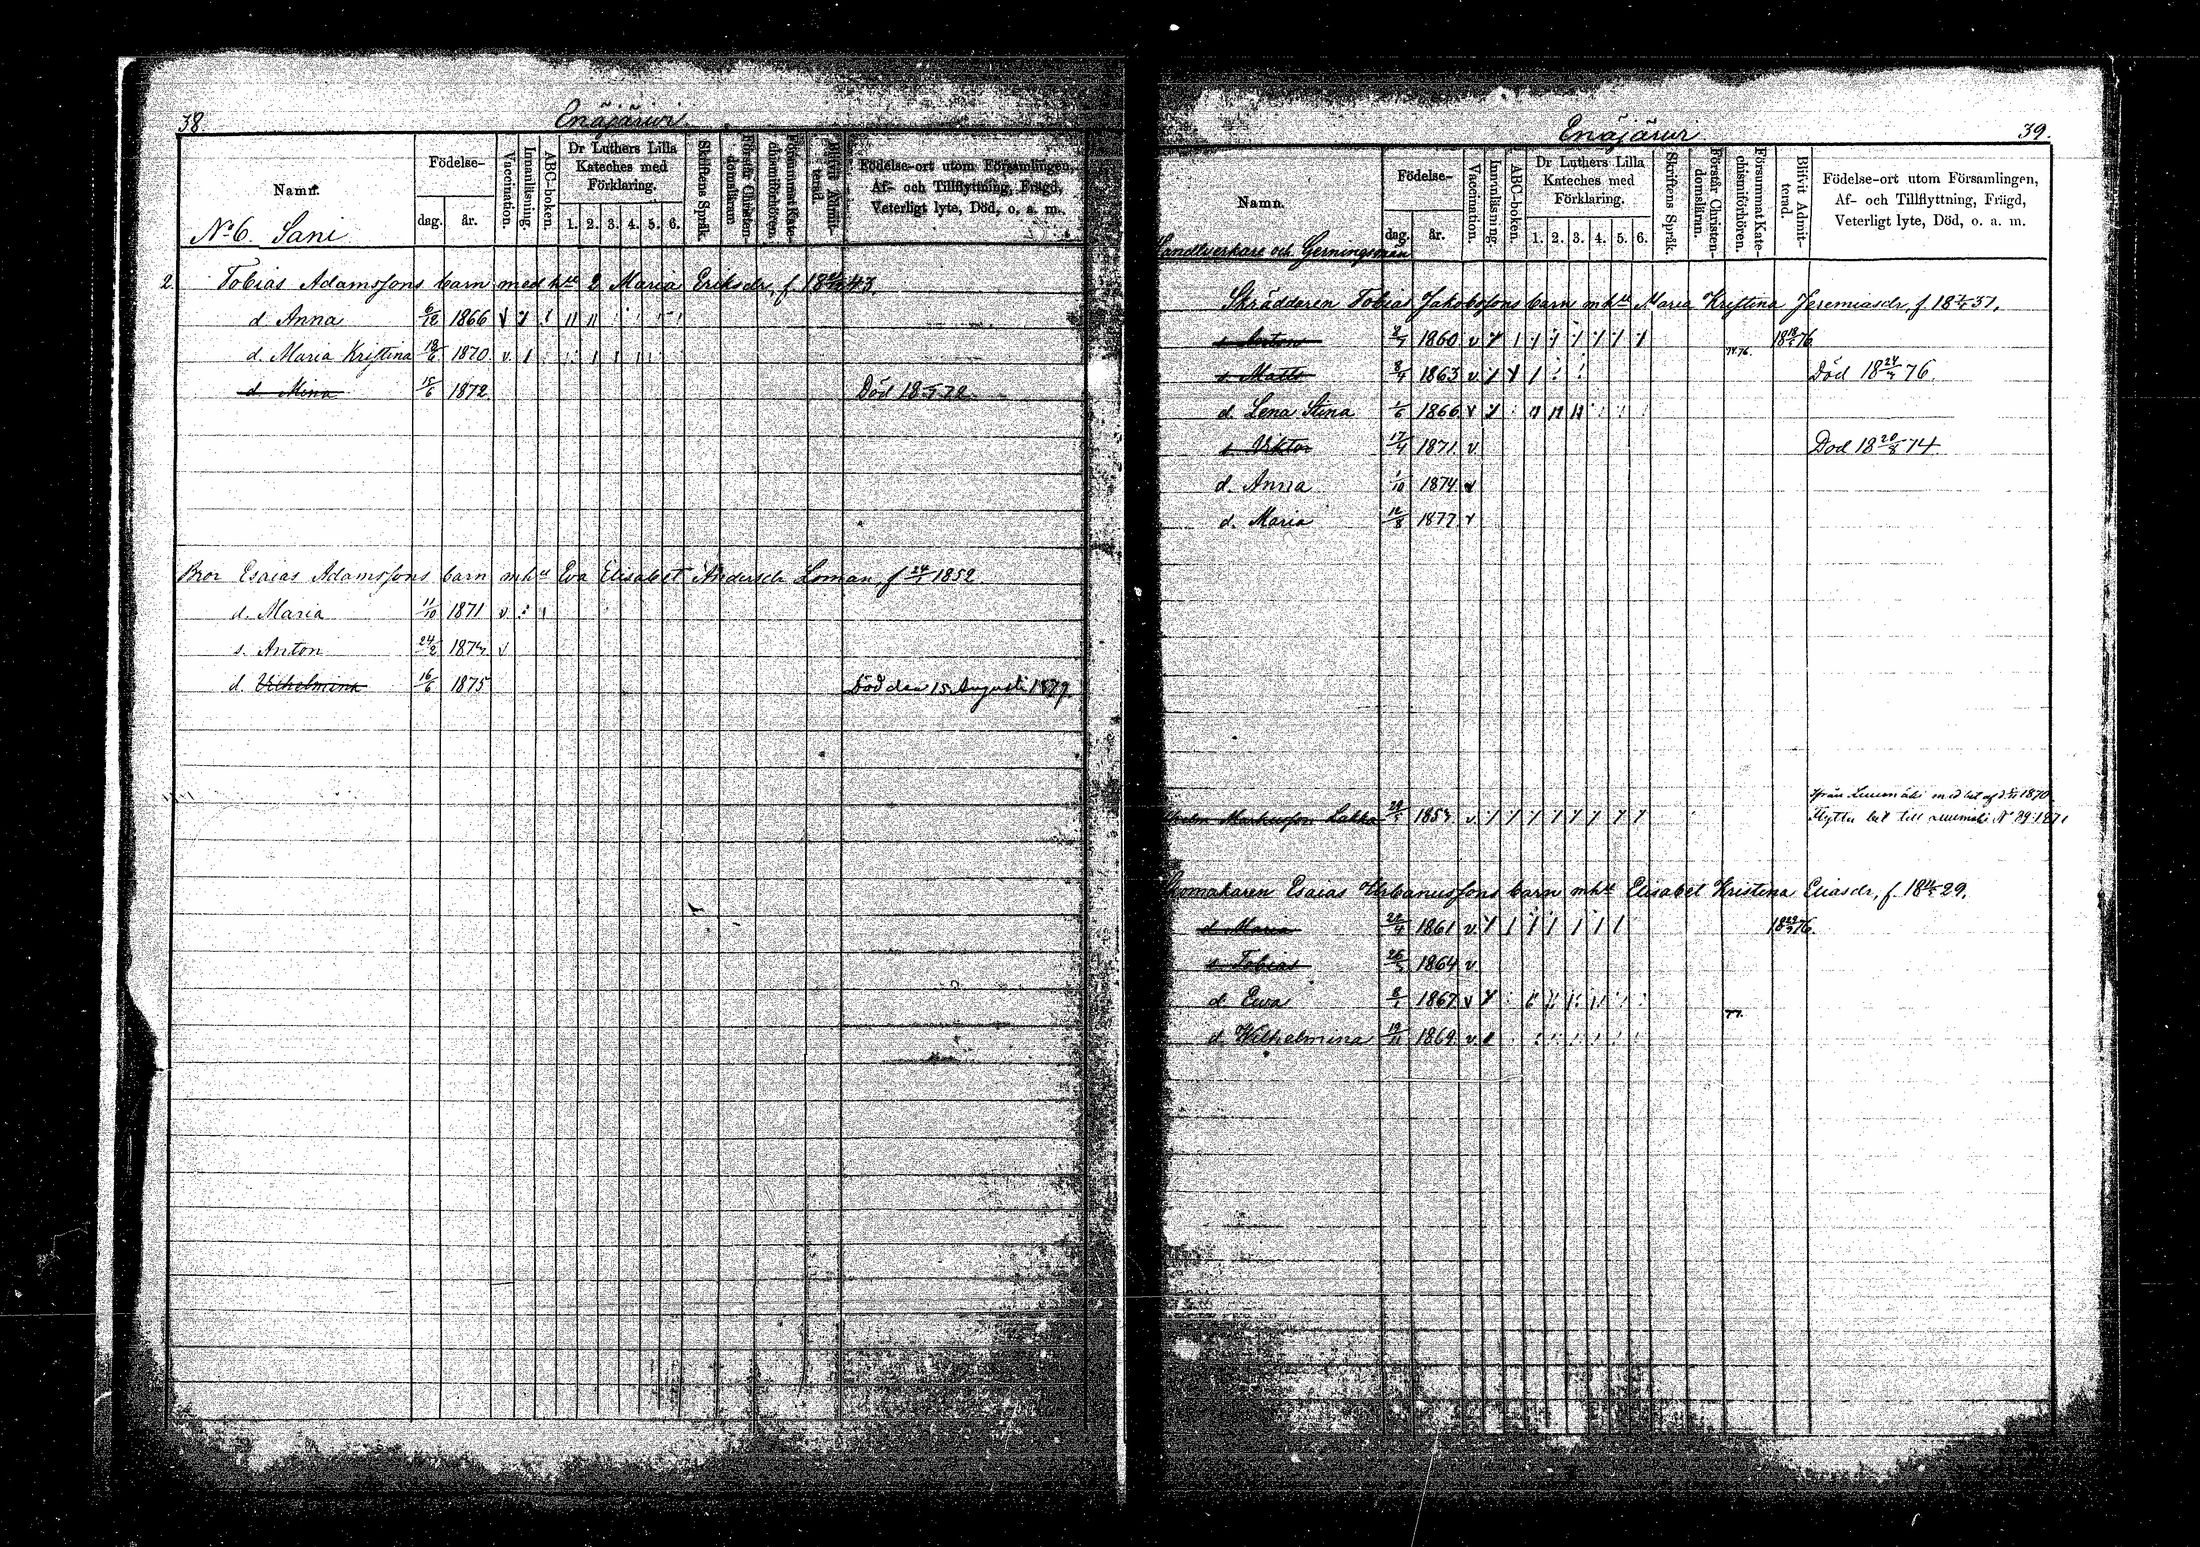 38
Enäjärwi
Namn.
Födelse-
dag.
år.
Vaccination.
Innanläsning.
ABC-boken.
Dr Luthers Lilla
Kateches med
Förklaring.
1. 2. 3. 4. 5. 6.
Skriftens Språk.
Förstår Christen-
domsläran.
Försummat Kate-
chismiförhören.
Blifvit Admit-
terad.
Födelse-ort utom Församlingen,
Af- och Tillflyttning, Frägd,
Veterligt lyte, Död, o. a. m.
No 6. Sani
2. Tobias Adamssons barn med hu 2 Maria Eriksdr, f.
d. Anna 1866
d. Maria Kristina 18/6 1870
d. Mina 15/6 1872 Död
Bror Esaias Adamssons barn mhu Eva Elisabet Andersdr Loman, f 1852.
d. Maria 11/10 1871
s. Anton 24/2
d. Vilhelmina 16/6 1875 Död den 15 Augusti 1879.
39.
Enäjärwi
Namn.
Födelse-
dag.
år.
Vaccination.
Innanläsning.
ABC-boken.
Dr Luthers Lilla
Kateches med
Förklaring.
1. 2. 3. 4. 5. 6.
Skriftens Språk.
Förstår Christen-
domsläran.
Försummat Kate-
chismiförhören.
Blifvit Admit-
terad.
Födelse-ort utom Församlingen,
Af- och Tillflyttning, Frägd,
Veterligt lyte, Död, o. a. m.
Handtverkare och Gerningsmän
Skräddaren Tobias Jakobssons barn mhu Maria Kristina Jeremiasdr, f.
s. Anton 1860
s. Matts 1863 Död
d. Lena Stina 1/6 1866
s. Viktor 17/4 1871 Död 18 20/8 74.
d. Anna 1/10 1874
d. Maria 12/8 1877
från Luumäki med bet af 1870
Markusson Lakka
Flytter bet till Luumäki No 29 1871
Skomakaren Esaias Urbanussons barn mhu Elisabet Kristina Eliasdr, f.
d. Maria 1861
s. Tobias 1864
d. Ewa 8/1 1867
77.
d. Wilhelmina 19/11 1869